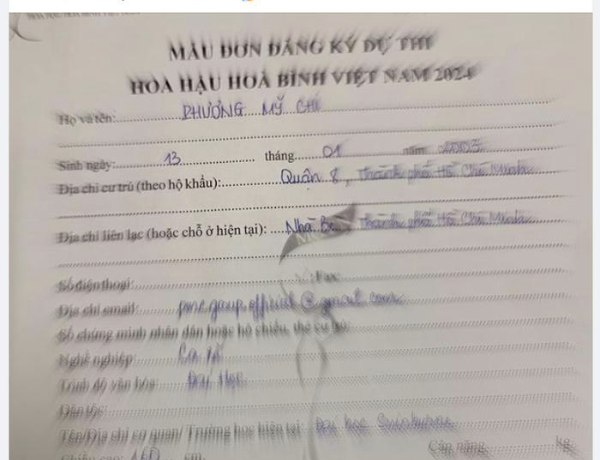 MẪU ĐƠN ĐĂNG KÝ DỰ THI
HOA HẬU HOÀ BÌNH VIỆT NAM 2024
Họ và tên: PHƯƠNG MỸ CHI
Sinh ngày: 13 tháng 01 năm 2003
Địa chỉ cư trú (theo hộ khẩu): Quận 8, Thành phố Hồ Chí Minh
Địa chỉ liên lạc (hoặc chỗ ở hiện tại): Nhà Bè, Thành phố Hồ Chí Minh
Số điện thoại: Fax:
Địa chỉ email: pmc.group.official@gmail.com
Số chứng minh nhân dân hoặc hộ chiếu, thẻ cư trú:
Nghề nghiệp: Ca sĩ
Trình độ văn hóa: Đại học
Dân tộc:
Tên/Địa chỉ cơ quan/ Trường học hiện tại: Đại học Swinburne
Chiều cao: 160 cm. Cân nặng: kg.